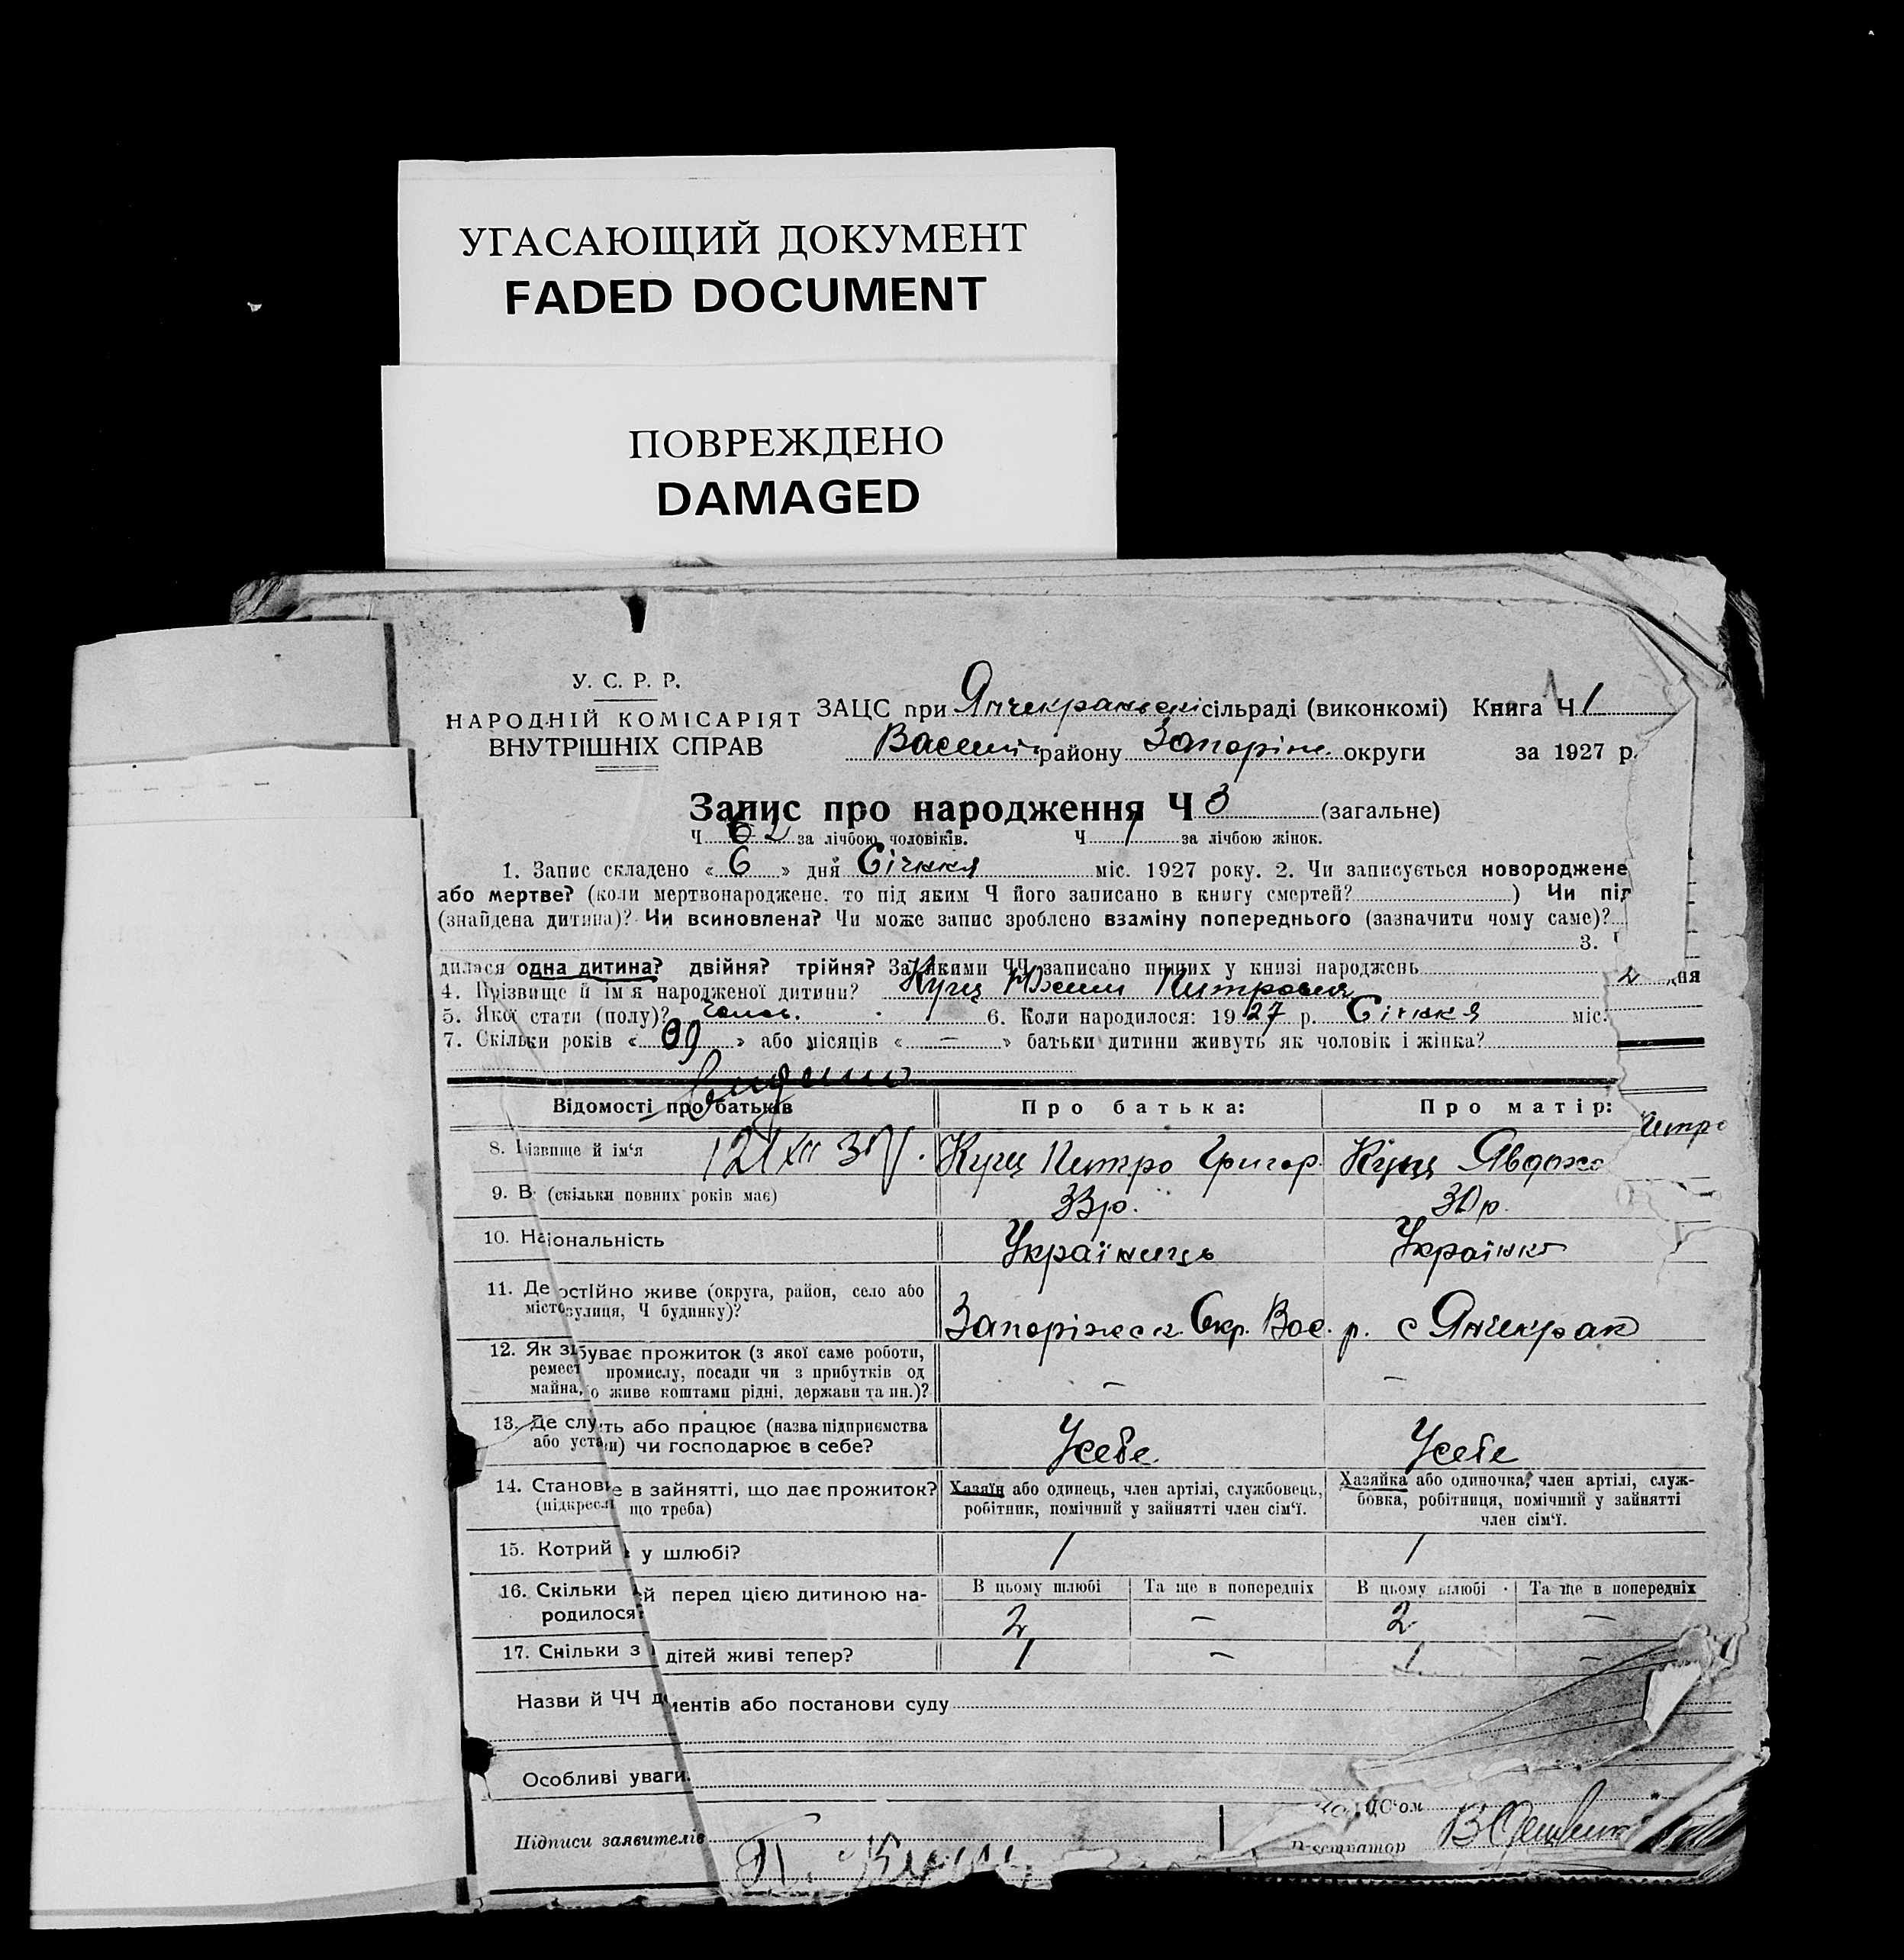 УГАСАЮЩИЙ ДОКУМЕНТ
FADED DOCUMENT
ПОВРЕЖДЕНО
DAMAGED
У. С. Р. Р.
НАРОДНІЙ КОМІСАРІЯТ
ВНУТРІШНІХ СПРАВ
ЗАЦС при Янчекраньскі сільраді (виконкомі) Книга Ч 1
Василів району Запоріж. округи за 1927 р.
Запис про народження Ч 3 (загальне)
Ч 2 за лічбою чоловіків. Ч 1 за лічбою жінок.
1. Запис складено « 6 » дня Січня міс. 1927 року. 2. Чи записується новороджене
або мертве? (коли мертвонароджене, то під яким Ч його записано в книгу смертей? ) Чи під
(знайдена дитина)? Чи всиновлена? Чи може запис зроблено взаміну попереднього (зазначити чому саме)?
3.
дилася одна дитина? двійня? трійня? За якими ЧЧ записано инших у книзі народжень
4. Прізвище й ім'я народженої дитини? Куц Юхим Питрович
2 дня
5. Якої стати (полу)? чолов. 6. Коли народилося: 1927 р. Січня міс.
7. Скільки років « 09 » або місяців « — » батьки дитини живуть як чоловік і жінка?
Відомості про батьків Про батька: Про матір:
8. ізвище й ім'я Куц Питро Григор. Куц Явдох
итро
9. В (скільки повних років має) 33р. 30р.
10. Національність Українець Українка
11. Де остійно живе (округа, район, село або
місто улиця, Ч будинку)?
Запоріжск Окр. Вас. р. с Янчекрак
12. Як з буває прожиток (з якої саме роботи,
ремест промислу, посади чи з прибутків од
майна, о живе коштами рідні, держави та ин.)?
— —
13. Де слу ть або працює (назва підприємства
або уста и) чи господарює в себе?
Усебе Усебе
14. Станови е в зайнятті, що дає прожиток?
(підкресл що треба)
Хазяїн або одинець, член артілі, службовець,
робітник, помічний у зайнятті член сім'ї.
Хазяйка або одиночка, член артілі, служ-
бовка, робітниця, помічний у зайнятті
член сім'ї.
15. Котрий у шлюбі? 1 1
16. Скільки ей перед цією дитиною на-
родилося?
В цьому шлюбі Та ще в попередніх В цьому шлюбі Та ще в попередніх
2 — 2 —
17. Скільки з дітей живі тепер? 1 — 1 —
Назви й ЧЧ д ментів або постанови суду
Особливі уваги.
Підписи заявителів П. Куц